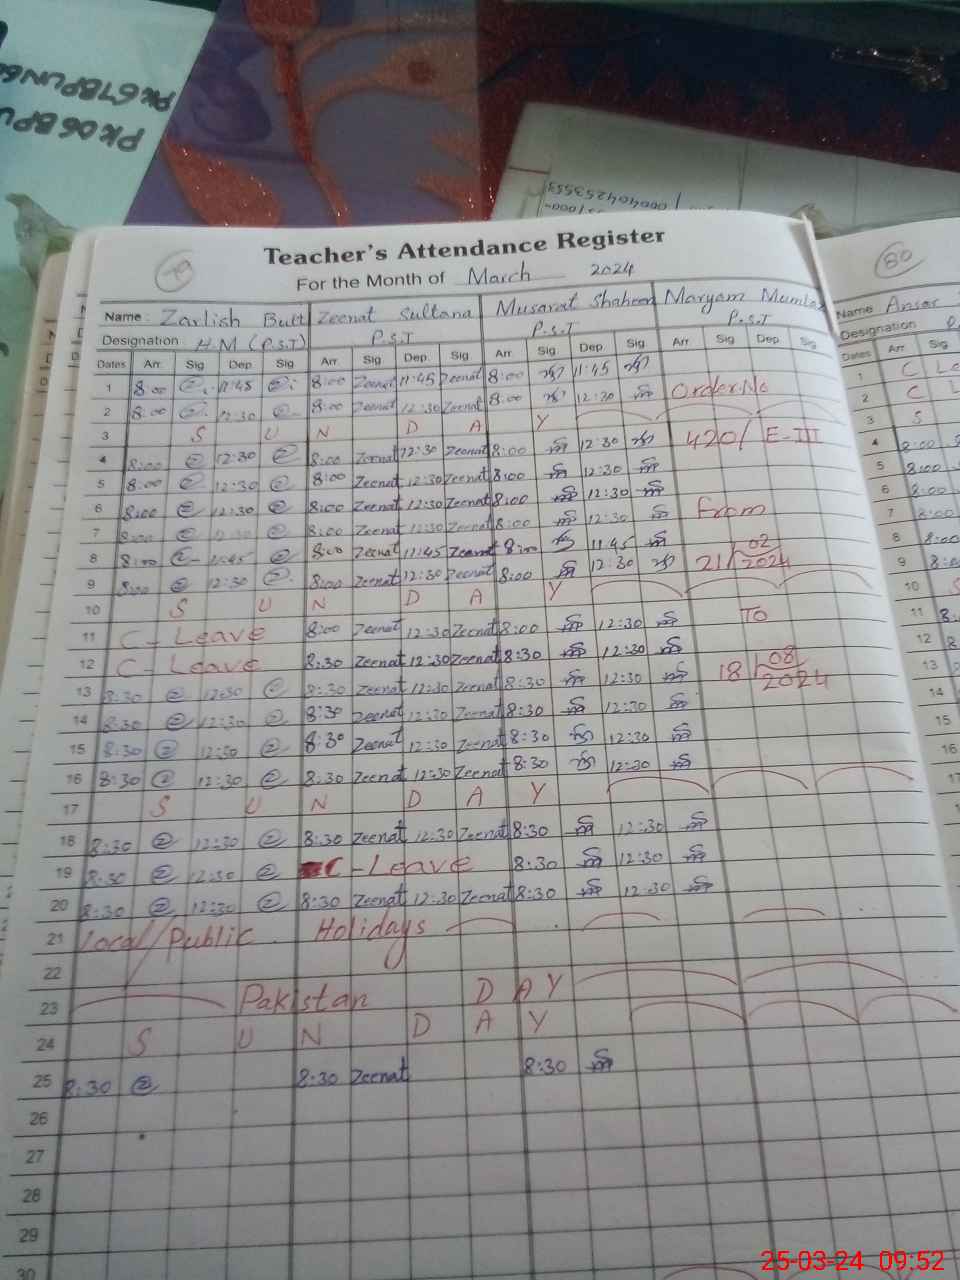 Teacher's Attendance Register
79
For the Month of March 2024
80
Name : Zarlish Butt Zeenat Sultana Musarat Shaheen Maryam Mumtaz
Name Ansar
Designation H.M (P.S.T) P.S.T P.S.T P.S.T
Designation
Dates Arr. Sig Dep Sig Arr. Sig Dep. Sig Arr. Sig. Dep. Sig Arr. Sig Dep. Sig
Dates Arr. Sig
1 8:00 11:45 8:00 Zeenat 11:45 Zeenat 8:00 11:45
1 C Le
2 8:00 12:30 8:00 Zeenat 12:30 Zeenat 8:00 12:30 Order No
2 C L
3 S U N D A Y
3 S
4 8:00 12:30 8:00 Zeenat 12:30 Zeenat 8:00 12:30 420/ E-III
4 8:00
5 8:00 12:30 8:00 Zeenat 12:30 Zeenat 8:00 12:30
5 8:00
6 8:00 12:30 8:00 Zeenat 12:30 Zeenat 8:00 12:30 From
6 8:00
7 8:00 12:30 8:00 Zeenat 12:30 Zeenat 8:00 12:30
7 8:00
8 8:00 11:45 8:00 Zeenat 11:45 Zeenat 8:00 11:45 21/02/2024
8 8:00
9 8:00 12:30 8:00 Zeenat 12:30 Zeenat 8:00 12:30
9 8:0
10 S U N D A Y
10 S
11 C - Leave 8:00 Zeenat 12:30 Zeenat 8:00 12:30 To
11 8:
12 C - Leave 8:30 Zeenat 12:30 Zeenat 8:30 12:30
12 8:
13 8:30 12:30 8:30 Zeenat 12:30 Zeenat 8:30 12:30 18/08/2024
13
14 8:30 12:30 8:30 Zeenat 12:30 Zeenat 8:30 12:30
14
15 8:30 12:30 8:30 Zeenat 12:30 Zeenat 8:30 12:30
15
16 8:30 12:30 8:30 Zeenat 12:30 Zeenat 8:30 12:30
16
17 S U N D A Y
17
18 8:30 12:30 8:30 Zeenat 12:30 Zeenat 8:30 12:30
18
19 8:30 12:30 C - Leave 8:30 12:30
19
20 8:30 12:30 8:30 Zeenat 12:30 Zeenat 8:30 12:30
21 Local/Public Holidays
22
23 Pakistan DAY
24 S U N D A Y
25 8:30 8:30 Zeenat 8:30
26
27
28
29
30
25-03-24 09:52